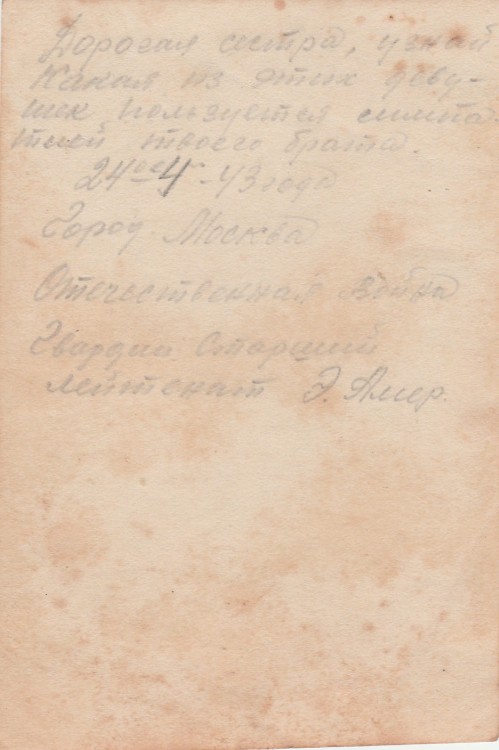 Дорогая сестра, узнай
Какая из этих деву-
шек пользуется симпа
тией твоего брата.
24ое 4 - 43 года
Город. Москва
Отечественная Война
Гвардии Старший
лейтенант Э. Амер.